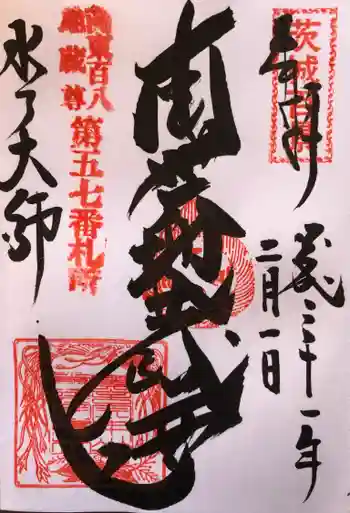 奉拝
茨城百景
平成三十一年
二月一日
南無地蔵尊
関東百八
地蔵尊
第五七番札所
水戸大師